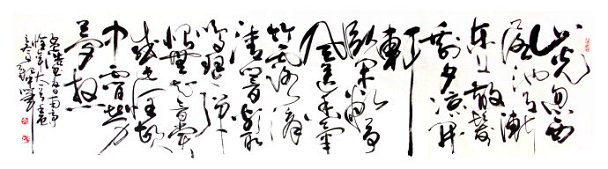 山光忽西
落池月渐
东上散发
乘夕凉开
轩
卧闲敞荷
风送香气
竹露滴
清响欲取
鸣琴弹
恨无知音赏
感此怀故
人中宵劳
梦想